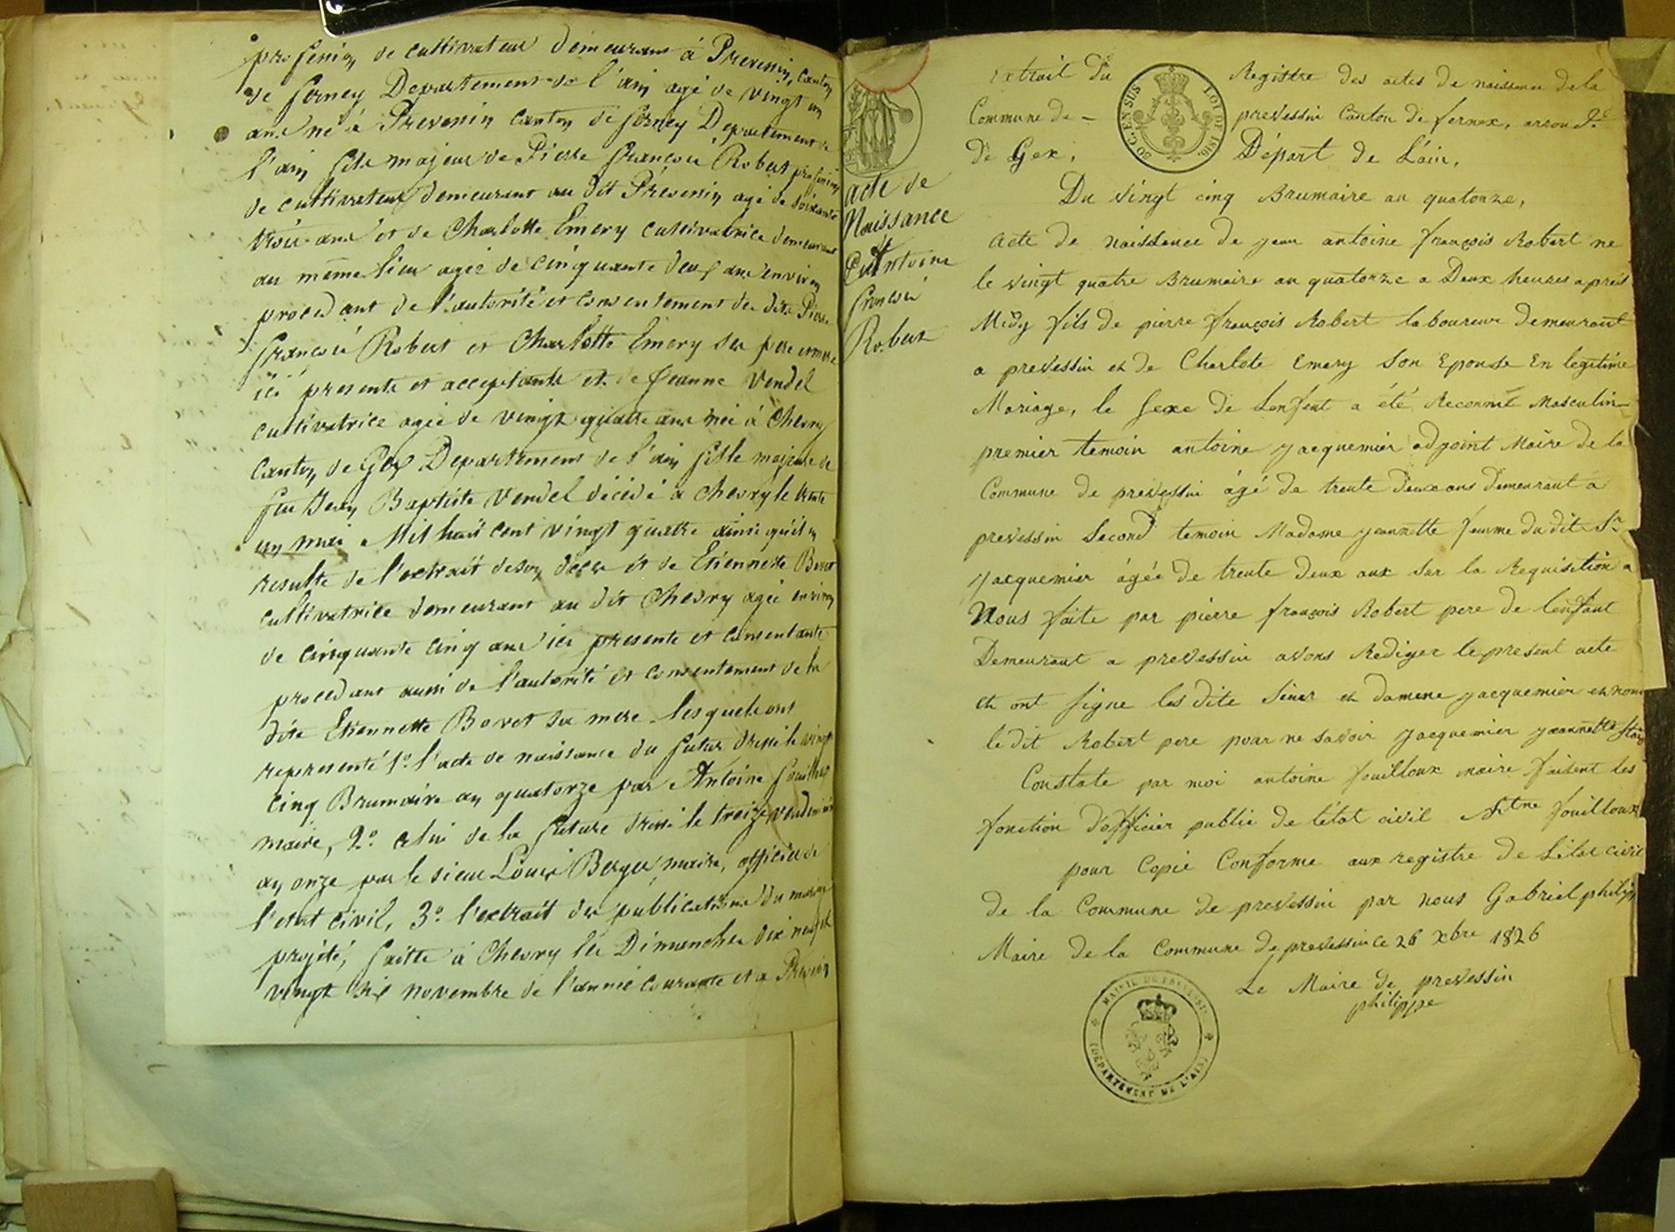 profession de cultivateur demeurant à Prevessin, Canton
de Ferney Departement de l'ain agé de vingt un
ans né à Prevessin Canton de ferney Departement de
l'ain fils majeur de Pierre françois Robert profession
de cultivateur demeurant au dit Prévessin agé de soixante
trois ans et de Charlotte Emery cultivatrice demeurant
au même lieu agée de cinquante deux ans environ
procedant de l'autorité et consentement des dits Pierre
françois Robert et Charlotte Emery ses pere et mere
ici presents et acceptants et de Jeanne Vendel
cultivatrice agée de vingt quatre ans née à Chevry
Canton de Gex Departement de l'ain fille majeure de
feu Jean Baptiste Vendel décédé à Chevry le trente
un mai Mil huit cent vingt quatre ainsi qu'il en
resulte de l'extrait de son décès et de Etiennette Bovet
cultivatrice demeurant au dit Chevry agée environ
de cinquante cinq ans ici presente et consentante
procedant aussi de l'autorité et consentement de la
dite Etiennette Bovet sa mere lesquels ont
representé 1º. l'acte de naissance du futur dressé le vingt
cinq Brumaire an quatorze par Antoine fouilloux
maire, 2º. celui de la future dressé le treize vendemiaire
an onze par le sieur Louis Berger maire, officier de
l'etat civil, 3º. l'extrait des publications du mariage
projeté, faitte à Chevry les Dimanches dix neuf et
vingt six novembre de l'année courante et a Prevessin
acte de
Naissance
d'Antoine
françois
Robert
extrait du Registre des actes de naissance de la
Commune de prevessin Canton de fernex, arron d.t
de Gex, Départ de Lain,
50 CEN. SES
LOI DE 1816
Du Vingt cinq Brumaire an quatorze,
acte de naissance de jean antoine françois Robert ne
le vingt quatre Brumaire an quatorze a Deux heures aprés
Midy fils de pierre françois Robert laboureur demeurant
a prevessin et de Charlote emery son Epouse En legitime
Mariage, le Sexe de Lenfent a été Reconnü Masculin
premier temoin antoine jacquemier adjoint Maire de la
Commune de prevessin âgé de trente deux ans demeurant a
prevessin Second temoin Madame jeannette femme du dit Sr.
jacquemier âgée de trente deux ans Sur la Requisition a
Nous faite par pierre françois Robert pere de lenfant
Demeurant a prevessin avons Rediger le present acte
et ont Signe les dits Sieur et damme jacquemier et non
le dit Robert pere pour ne Savoir jacquemier jeannette
Constate par moi antoine fouilloux maire faisent les
fonction d'officier public de létat civil Antne fouilloux
pour Copie Conforme aux registre de Létat civil
de la Commune de prevessin par nous Gabriel philippe
Maire de la Commune de prevessin ce 26 Xbre 1826
Le Maire de prevessin
philippe
(DÉPARTEMENT DE L'AIN)